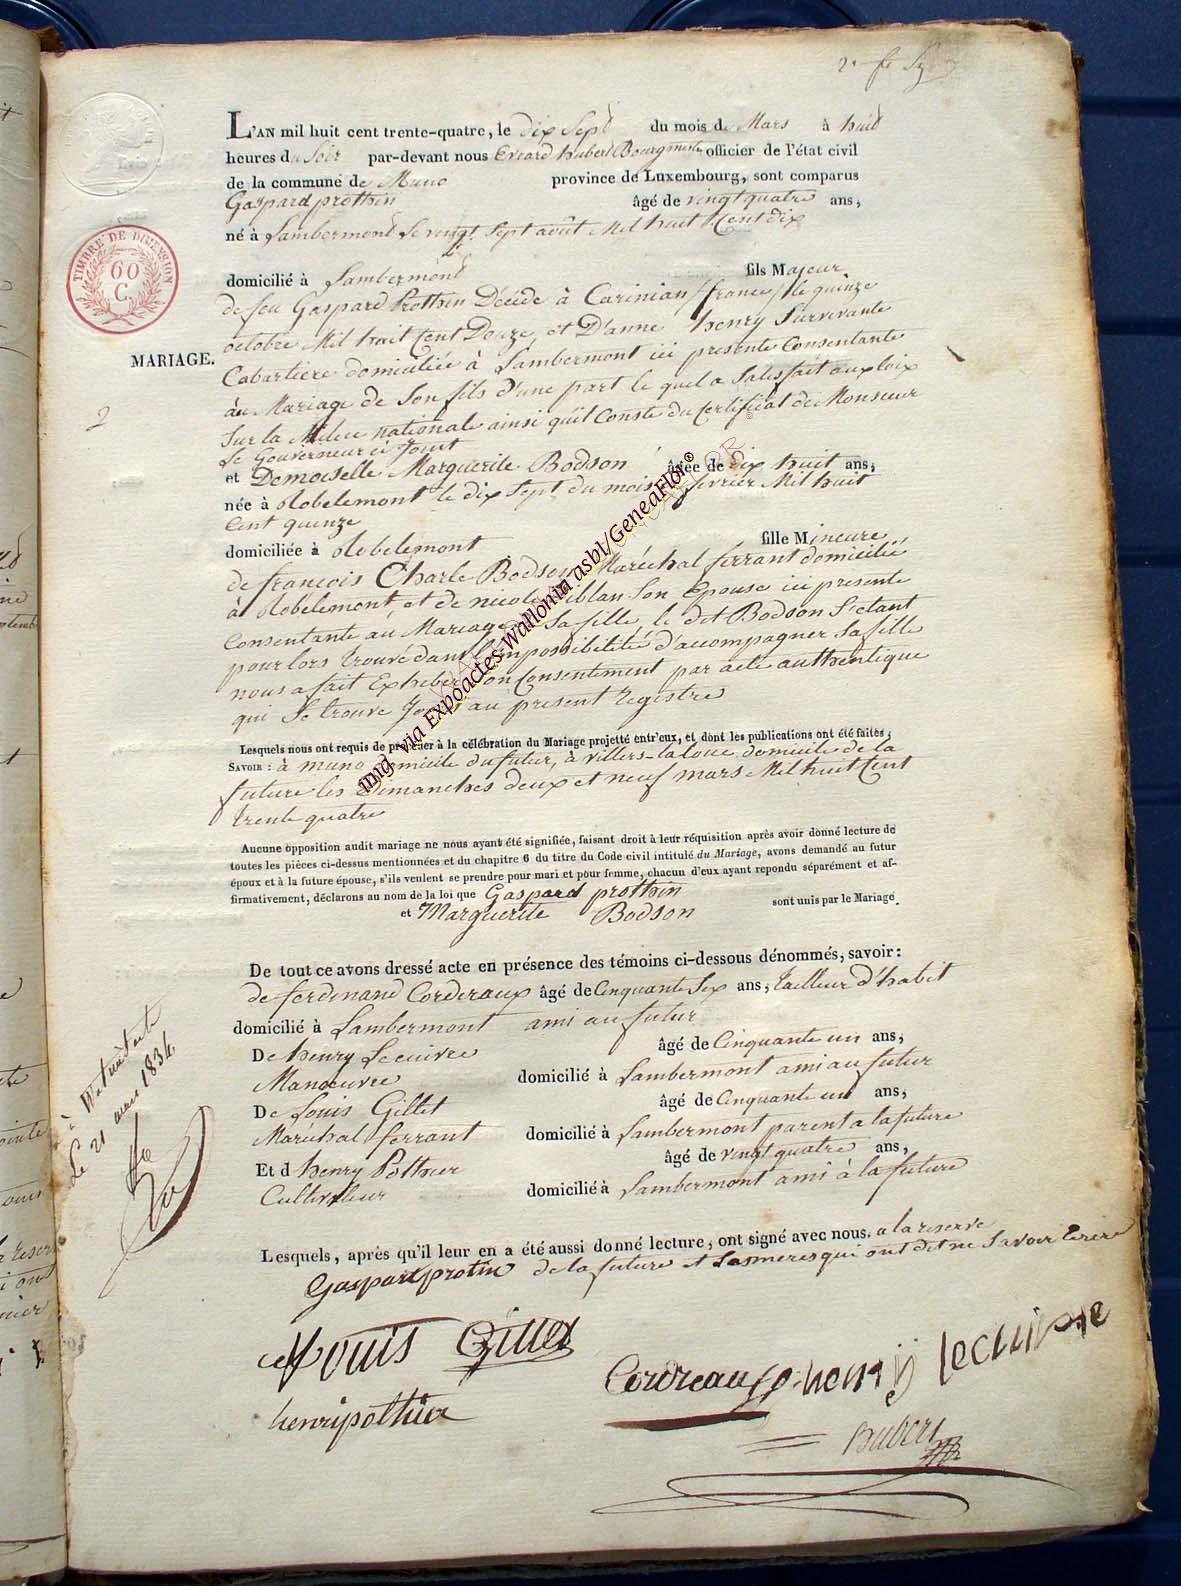 2e
L'AN mil huit cent trente-quatre, le dix Sept du mois de Mars à huit
heures du Soir par-devant nous Evrard hubert Bourgmestre officier de l'état civil
de la commune de Muno province de Luxembourg, sont comparus
Gaspard prothin âgé de vingt quatre ans,
né à Lambermont le vingt Sept août Mil huit Cent dix
domicilié à Lambermont fils Majeur
de feu Gaspard Prothin Décédé à Carinian (france) le quinze
octobre Mil huit Cent Douze, et D'anne henry Survivante
Cabartière domiciliée à Lambermont ici presente Consentante
MARIAGE.
au Mariage de Son fils d'une part le quel a Satisfait aux loix
2
Sur la Milice nationale ainsi qu'il Conste du Certificat de Monsieur
le Gouverneur ci Joint
et Demoiselle Marguerite Bodson âgée de dix huit ans,
née à Robelemont le dix Sept du mois fevrier Mil huit
Cent quinze
domiciliée à Robelemont fille Mineure
de françois Charle Bodson Maréchal ferrant domicilié
à Robelemont, et de nicole Liblan Son Epouse ici presente
Consentante au Mariage de Sa fille, le dit Bodson S'etant
pour lors trouvé dans l'impossibilitée d'accompagner Sa fille
nous a fait Exhiber Son Consentement par acte authentique
qui Se trouve Joint au present registre
Lesquels nous ont requis de procéder à la célébration du Mariage projetté entr'eux, et dont les publications ont été faites;
SAVOIR : à muno domicile du futur, à villers-la loue domicile de la
future les Dimanches deux et neuf mars Mil huit Cent
trente quatre
Aucune opposition audit mariage ne nous ayant été signifiée, faisant droit à leur réquisition après avoir donné lecture de
toutes les pièces ci-dessus mentionnées et du chapitre 6 du titre du Code civil intitulé du Mariage, avons demandé au futur
époux et à la future épouse, s'ils veulent se prendre pour mari et pour femme, chacun d'eux ayant repondu séparément et af-
firmativement, déclarons au nom de la loi que Gaspard prothin
et Marguerite Bodson sont unis par le Mariage.
De tout ce avons dressé acte en présence des témoins ci-dessous dénommés, savoir:
de ferdinand Corderaux âgé de Cinquante Six ans, Tailleur d'habit
domicilié à Lambermont ami au futur
De henry Lecuivre âgé de Cinquante un ans,
Manœuvre domicilié à Lambermont ami au futur
De Louis Gillet âgé de Cinquante un ans,
Maréchal ferrant domicilié à Lambermont parent a la future
Et d henry Pothier âgé de vingt quatre ans,
Cultivateur domicilié à Lambermont ami à la future
Lesquels, après qu'il leur en a été aussi donné lecture, ont signé avec nous, a la reserve
de la future et Les meres qui ont dit ne Savoir Ecrire
Gaspard protin
Louis Gillet
Cordreaux henry lecuivre
henri pothier
hubert
Le 21 mars 1834
TIMBRE DE DIMENSION
60
C.
img via Expoactes-Wallonia asbl/GeneaFlor®